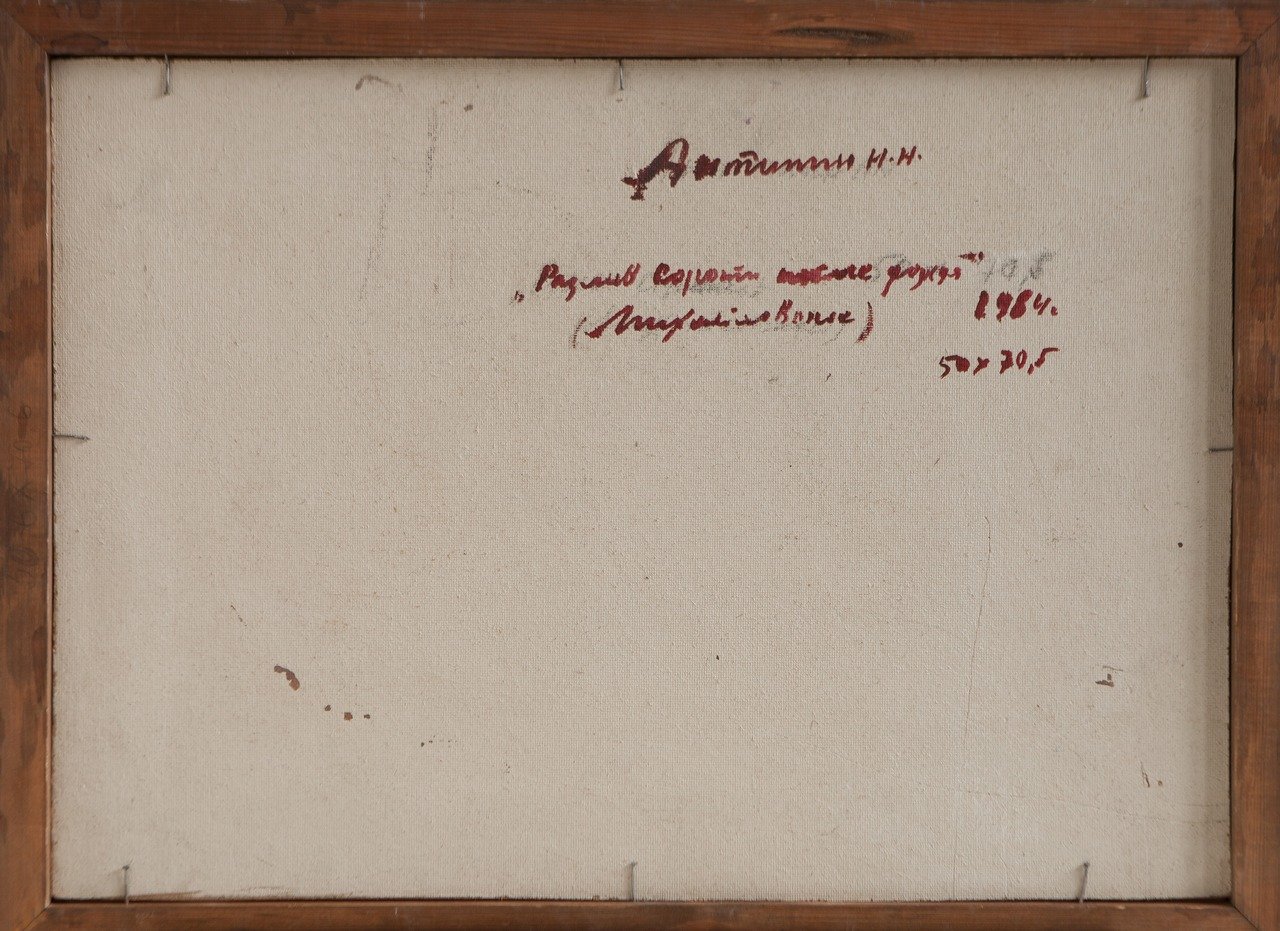 Антипин Н.Н.
„Разлив Сороти после дождя"
1984.
(Михайловское)
50x70,5